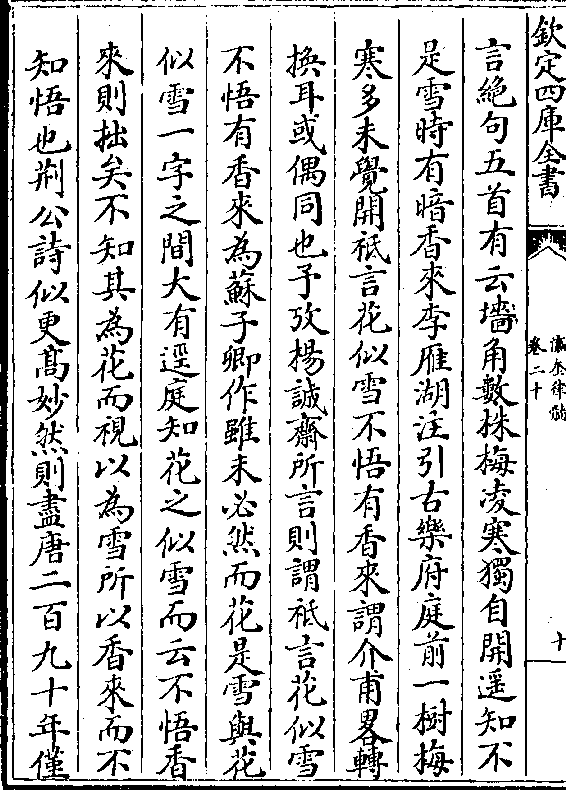 欽定四庫全書
瀛奎律髓
卷二十
十
言絶句五首有云墻角數株梅凌寒獨自開遥知不
是雪時有暗香來李雁湖注引古樂府庭前一樹梅
寒多未覺開祇言花似雪不悟有香來謂介甫畧轉
換耳或偶同也予攷楊誠齋所言則謂祗言花似雪
不悟有香來為蘇子卿作雖未必然而花是雪與花
似雪一字之間大有逕庭知花之似雪而云不悟香
來則拙矣不知其為花而視以為雪所以香來而不
知悟也荆公詩似更髙妙然則盡唐二百九十年僅